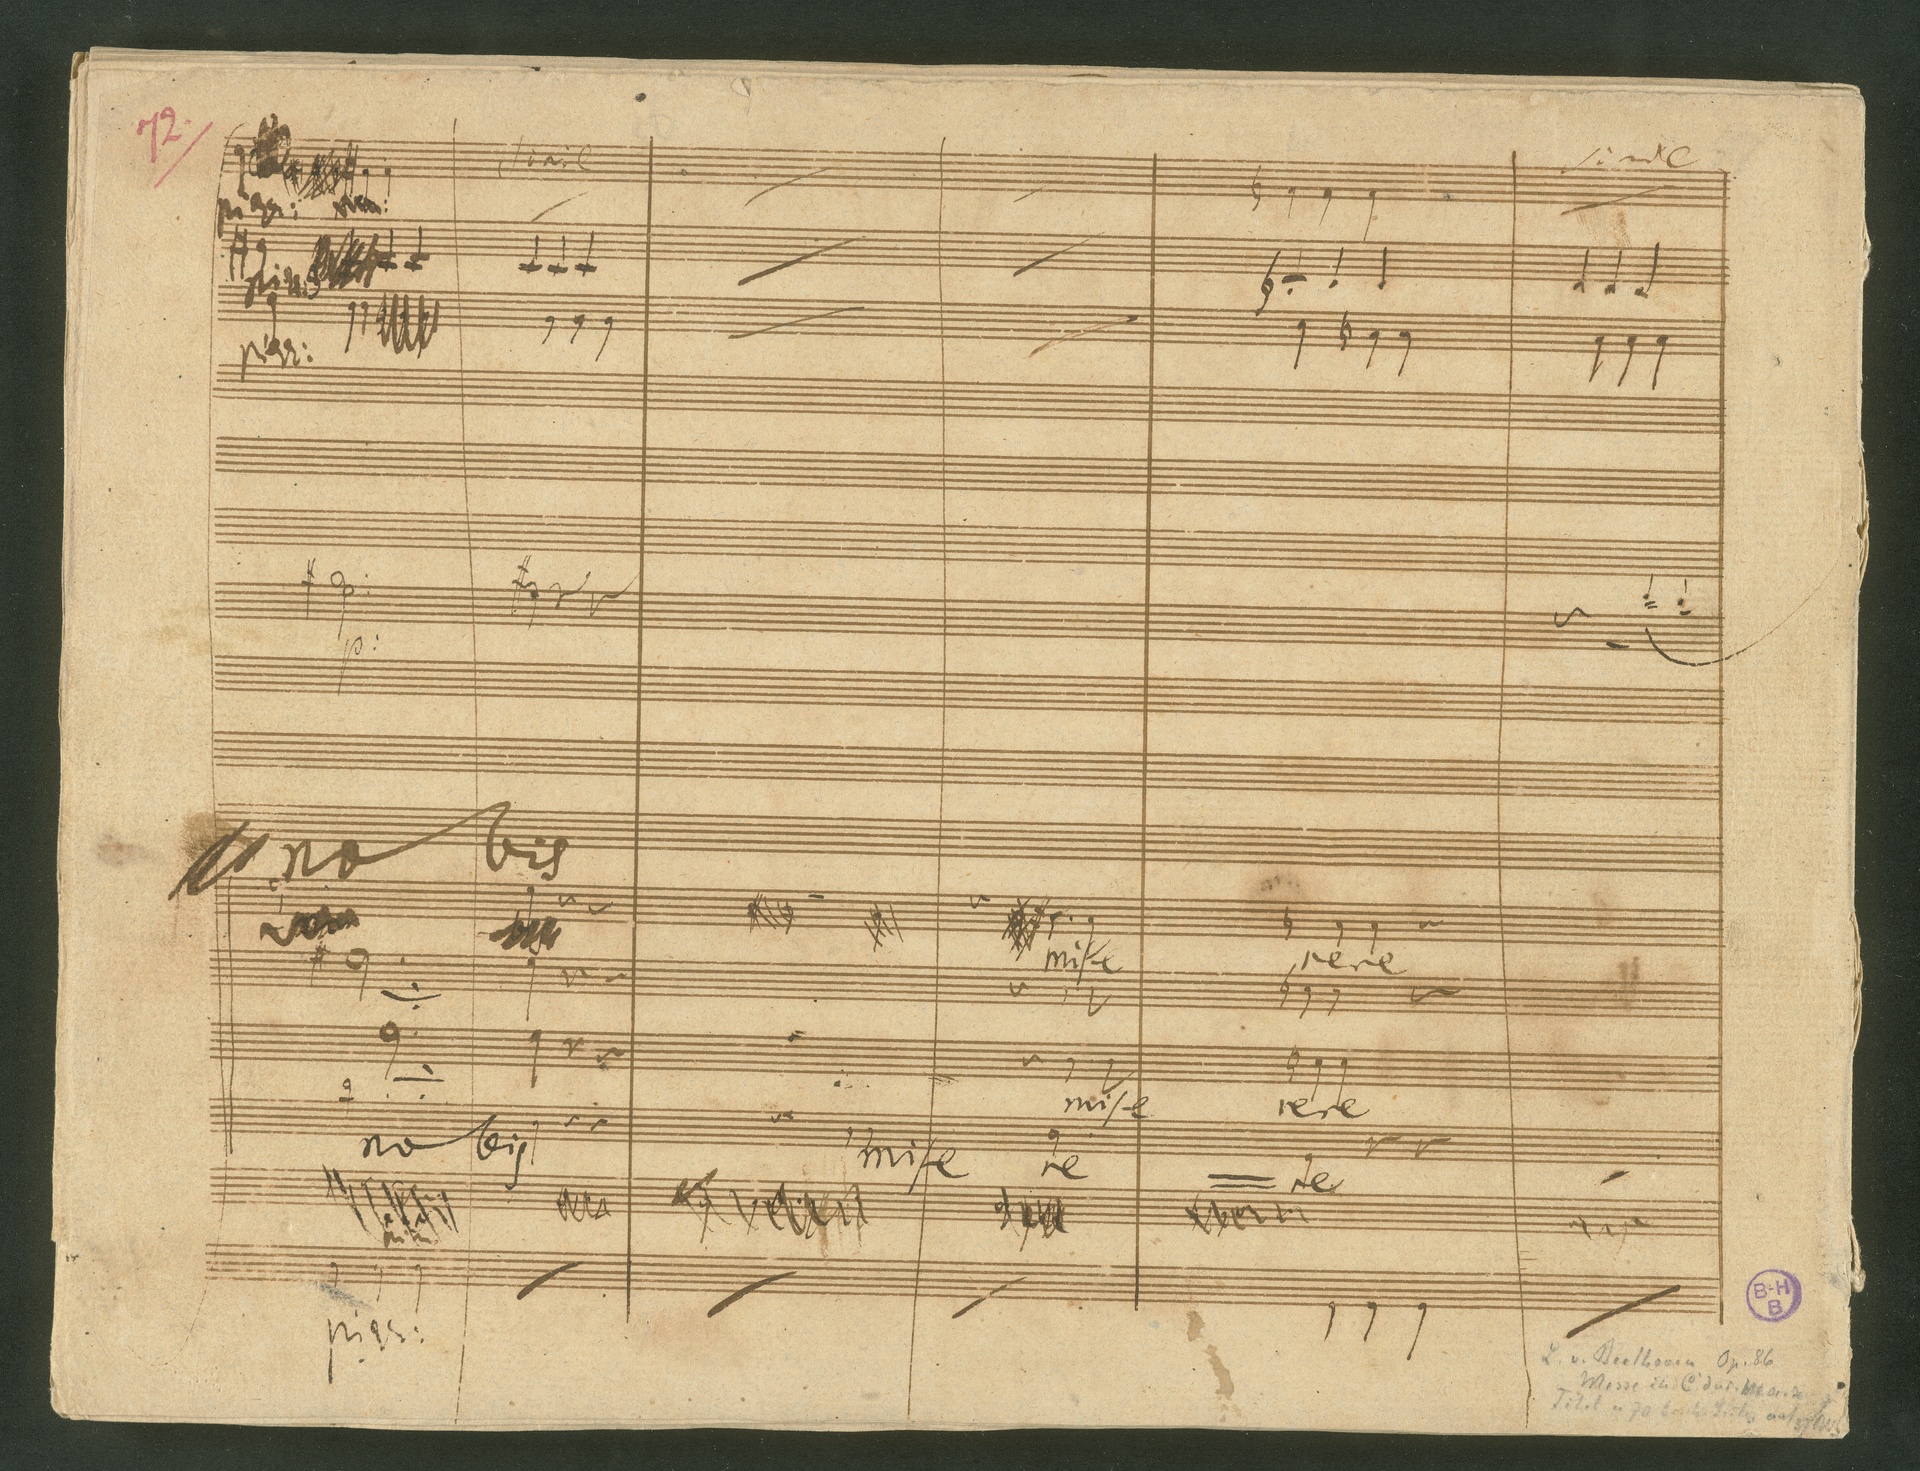 72
simile
simile
pizz:
pizz:
pizz:
p:
no bis
mise rere
mise rere
no bis mise re re
pizz:
B-H
B
L. v. Beethoven Op. 86
Messe in C dur
Titel u 70